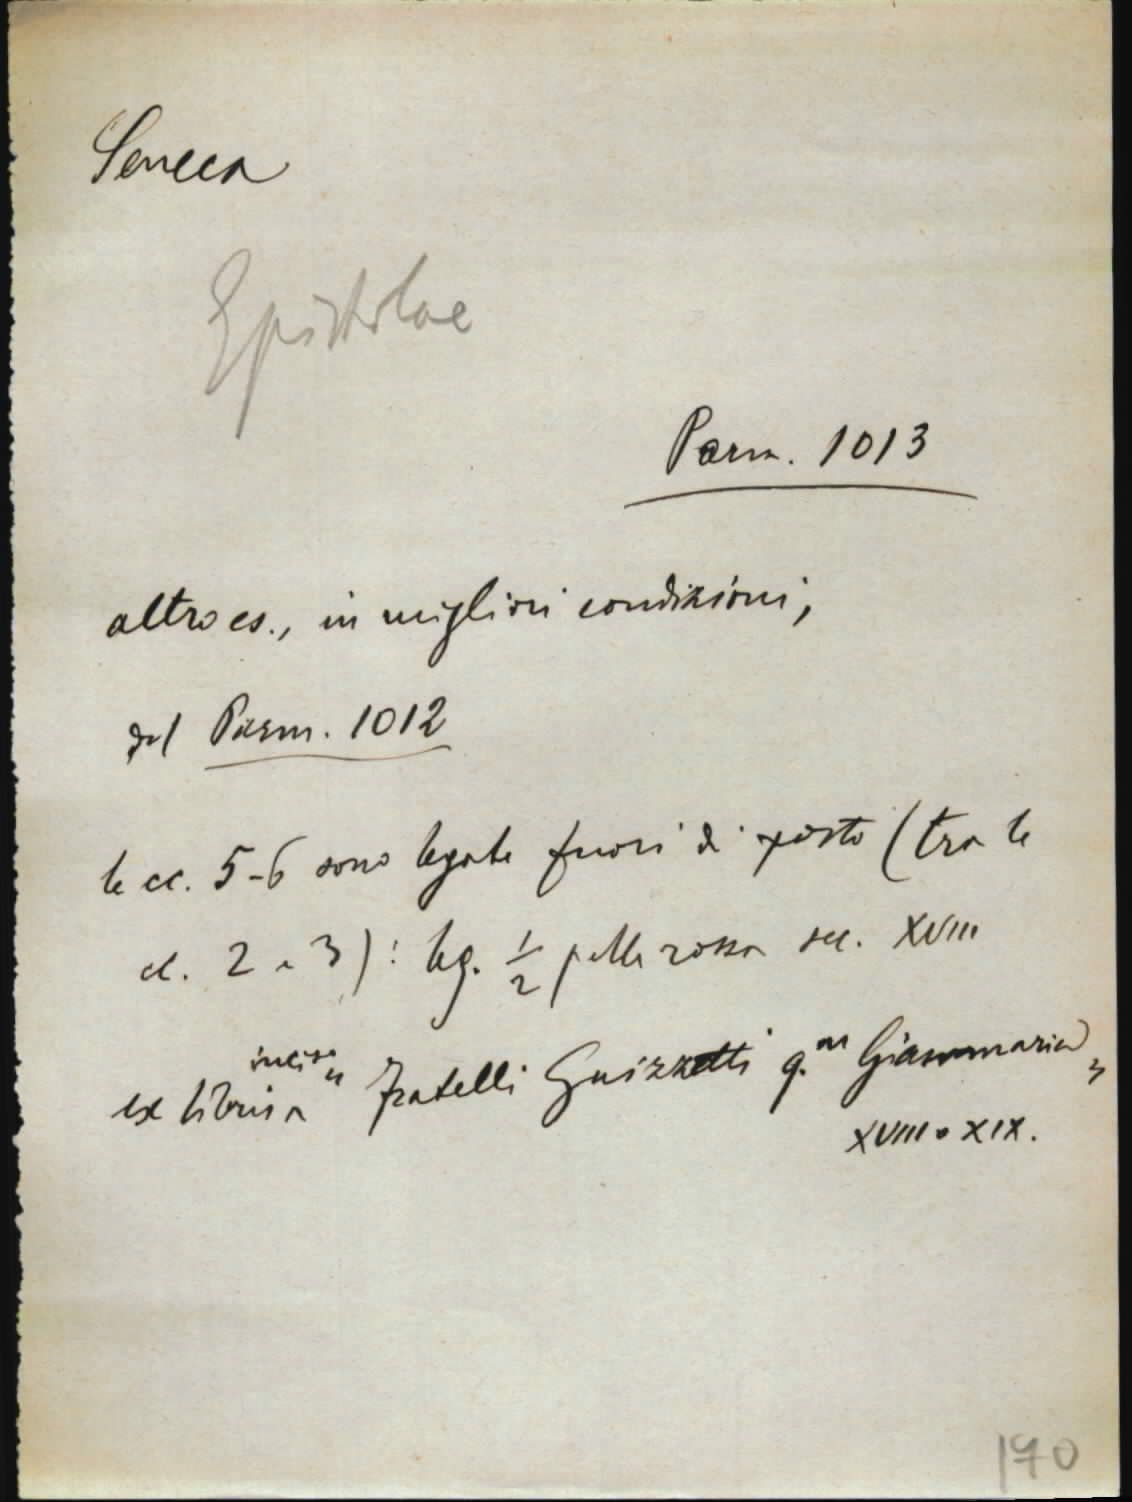 Seneca
Epistolae
Parm. 1013
altro es., in migliori condizioni,
del Parm. 1012
le cc. 5-6 sono legate fuori di posto (tra le
cc. 2 e 3): leg. ½ pelle rossa sec. XVIII
inciso
ex libris a " Fratelli Guizzetti q.m Giammaria "
XVIII o XIX.
190